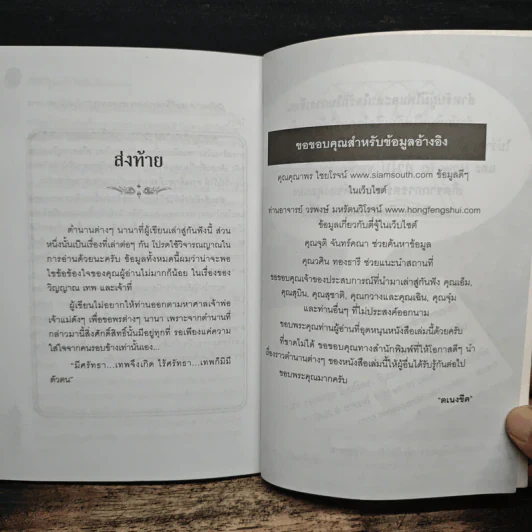 ส่งท้าย
ตำนานต่างๆ นานาที่ผู้เขียนเล่าสู่กันฟังนี้ ส่วน
หนึ่งนั้นเป็นเรื่องที่เล่าต่อๆ กัน โปรดใช้วิจารณญาณใน
การอ่านด้วยนะครับ ข้อมูลทั้งหมดนี้ผมว่าน่าจะพอ
ไขข้อข้องใจของคุณผู้อ่านไม่มากก็น้อย ในเรื่องของ
วิญญาณ เทพ และเจ้าที่
ผู้เขียนไม่อยากให้ท่านออกตามหาศาลเจ้าพ่อ
เจ้าแม่ดังๆ เพื่อขอพรต่างๆ นานา เพราะจากตำนานที่
กล่าวมานี้สิ่งศักดิ์สิทธิ์นั้นมีอยู่ทุกที่ รอเพียงแค่ความ
ใส่ใจจากคนรอบข้างเท่านั้นเอง...
"มีศรัทธา...เทพจึงเกิด ไร้ศรัทธา...เทพก็มิมี
ตัวตน"
ขอขอบคุณสำหรับข้อมูลอ้างอิง
คุณคุณาพร ไชยโรจน์ www.siamsouth.com ข้อมูลดีๆ
ในเว็บไซต์
ท่านอาจารย์ วรพงษ์ มหรัตนวิโรจน์ www.hongfengshui.com
ข้อมูลเกี่ยวกับตี่จู้ในเว็บไซต์
คุณจุติ จันทร์คณา ช่วยค้นหาข้อมูล
คุณวศิน ทองธารี ช่วยแนะนำสถานที่
ขอขอบคุณเจ้าของประสบการณ์ที่นำมาเล่าสู่กันฟัง คุณเอ็ม,
คุณสุบิน, คุณสุชาติ, คุณกวางและคุณเฉิน, คุณจุ๋ม
และท่านอื่นๆ ที่ไม่ประสงค์ออกนาม
ขอบพระคุณท่านผู้อ่านที่อุดหนุนหนังสือเล่มนี้ด้วยครับ
ที่ขาดไม่ได้ ขอขอบคุณทางสำนักพิมพ์ที่ให้โอกาสดีๆ นำ
เรื่องราวตำนานต่างๆ ของหนังสือเล่มนี้ให้ผู้อื่นได้รับรู้กันต่อไป
ขอบพระคุณมากครับ
"ตเนงซีด"